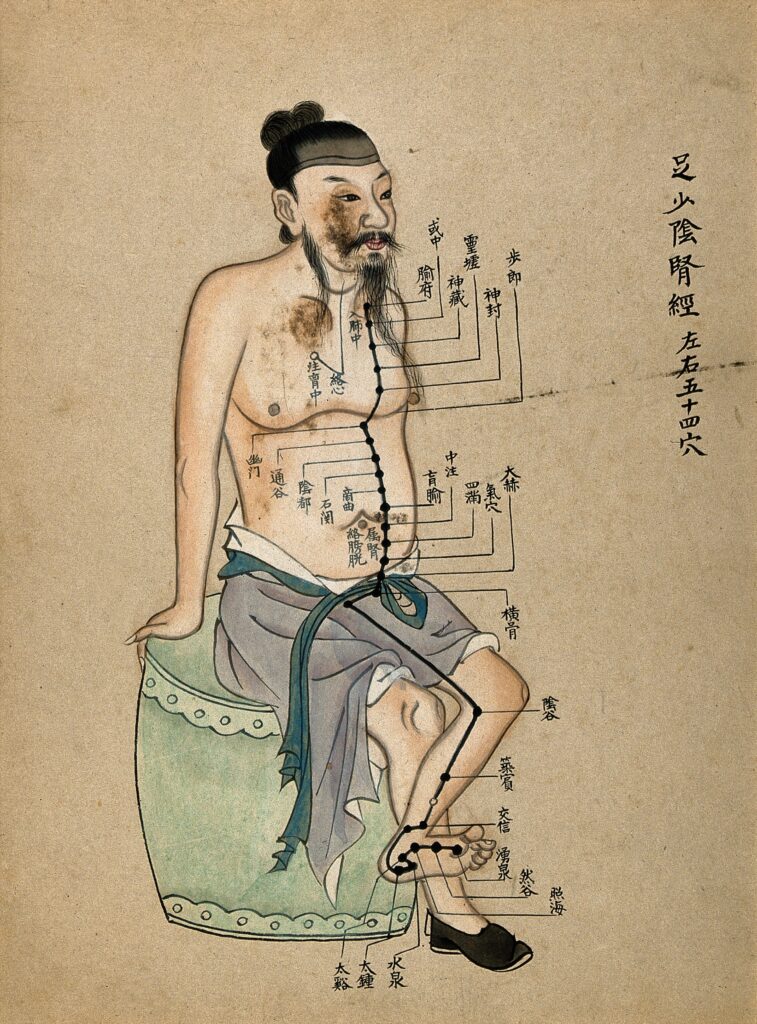 足少陰腎經 左右五十四穴
步郎
神封
靈墟
神藏
或中
腧府
入肺中
絡心
注胷中
幽門
通谷
陰都
石関
商曲
肓腧
中注
四滿
氣穴
大赫
屬腎
絡膀胱
橫骨
陰谷
築賔
交信
湧泉
然谷
照海
水泉
太鍾
太谿